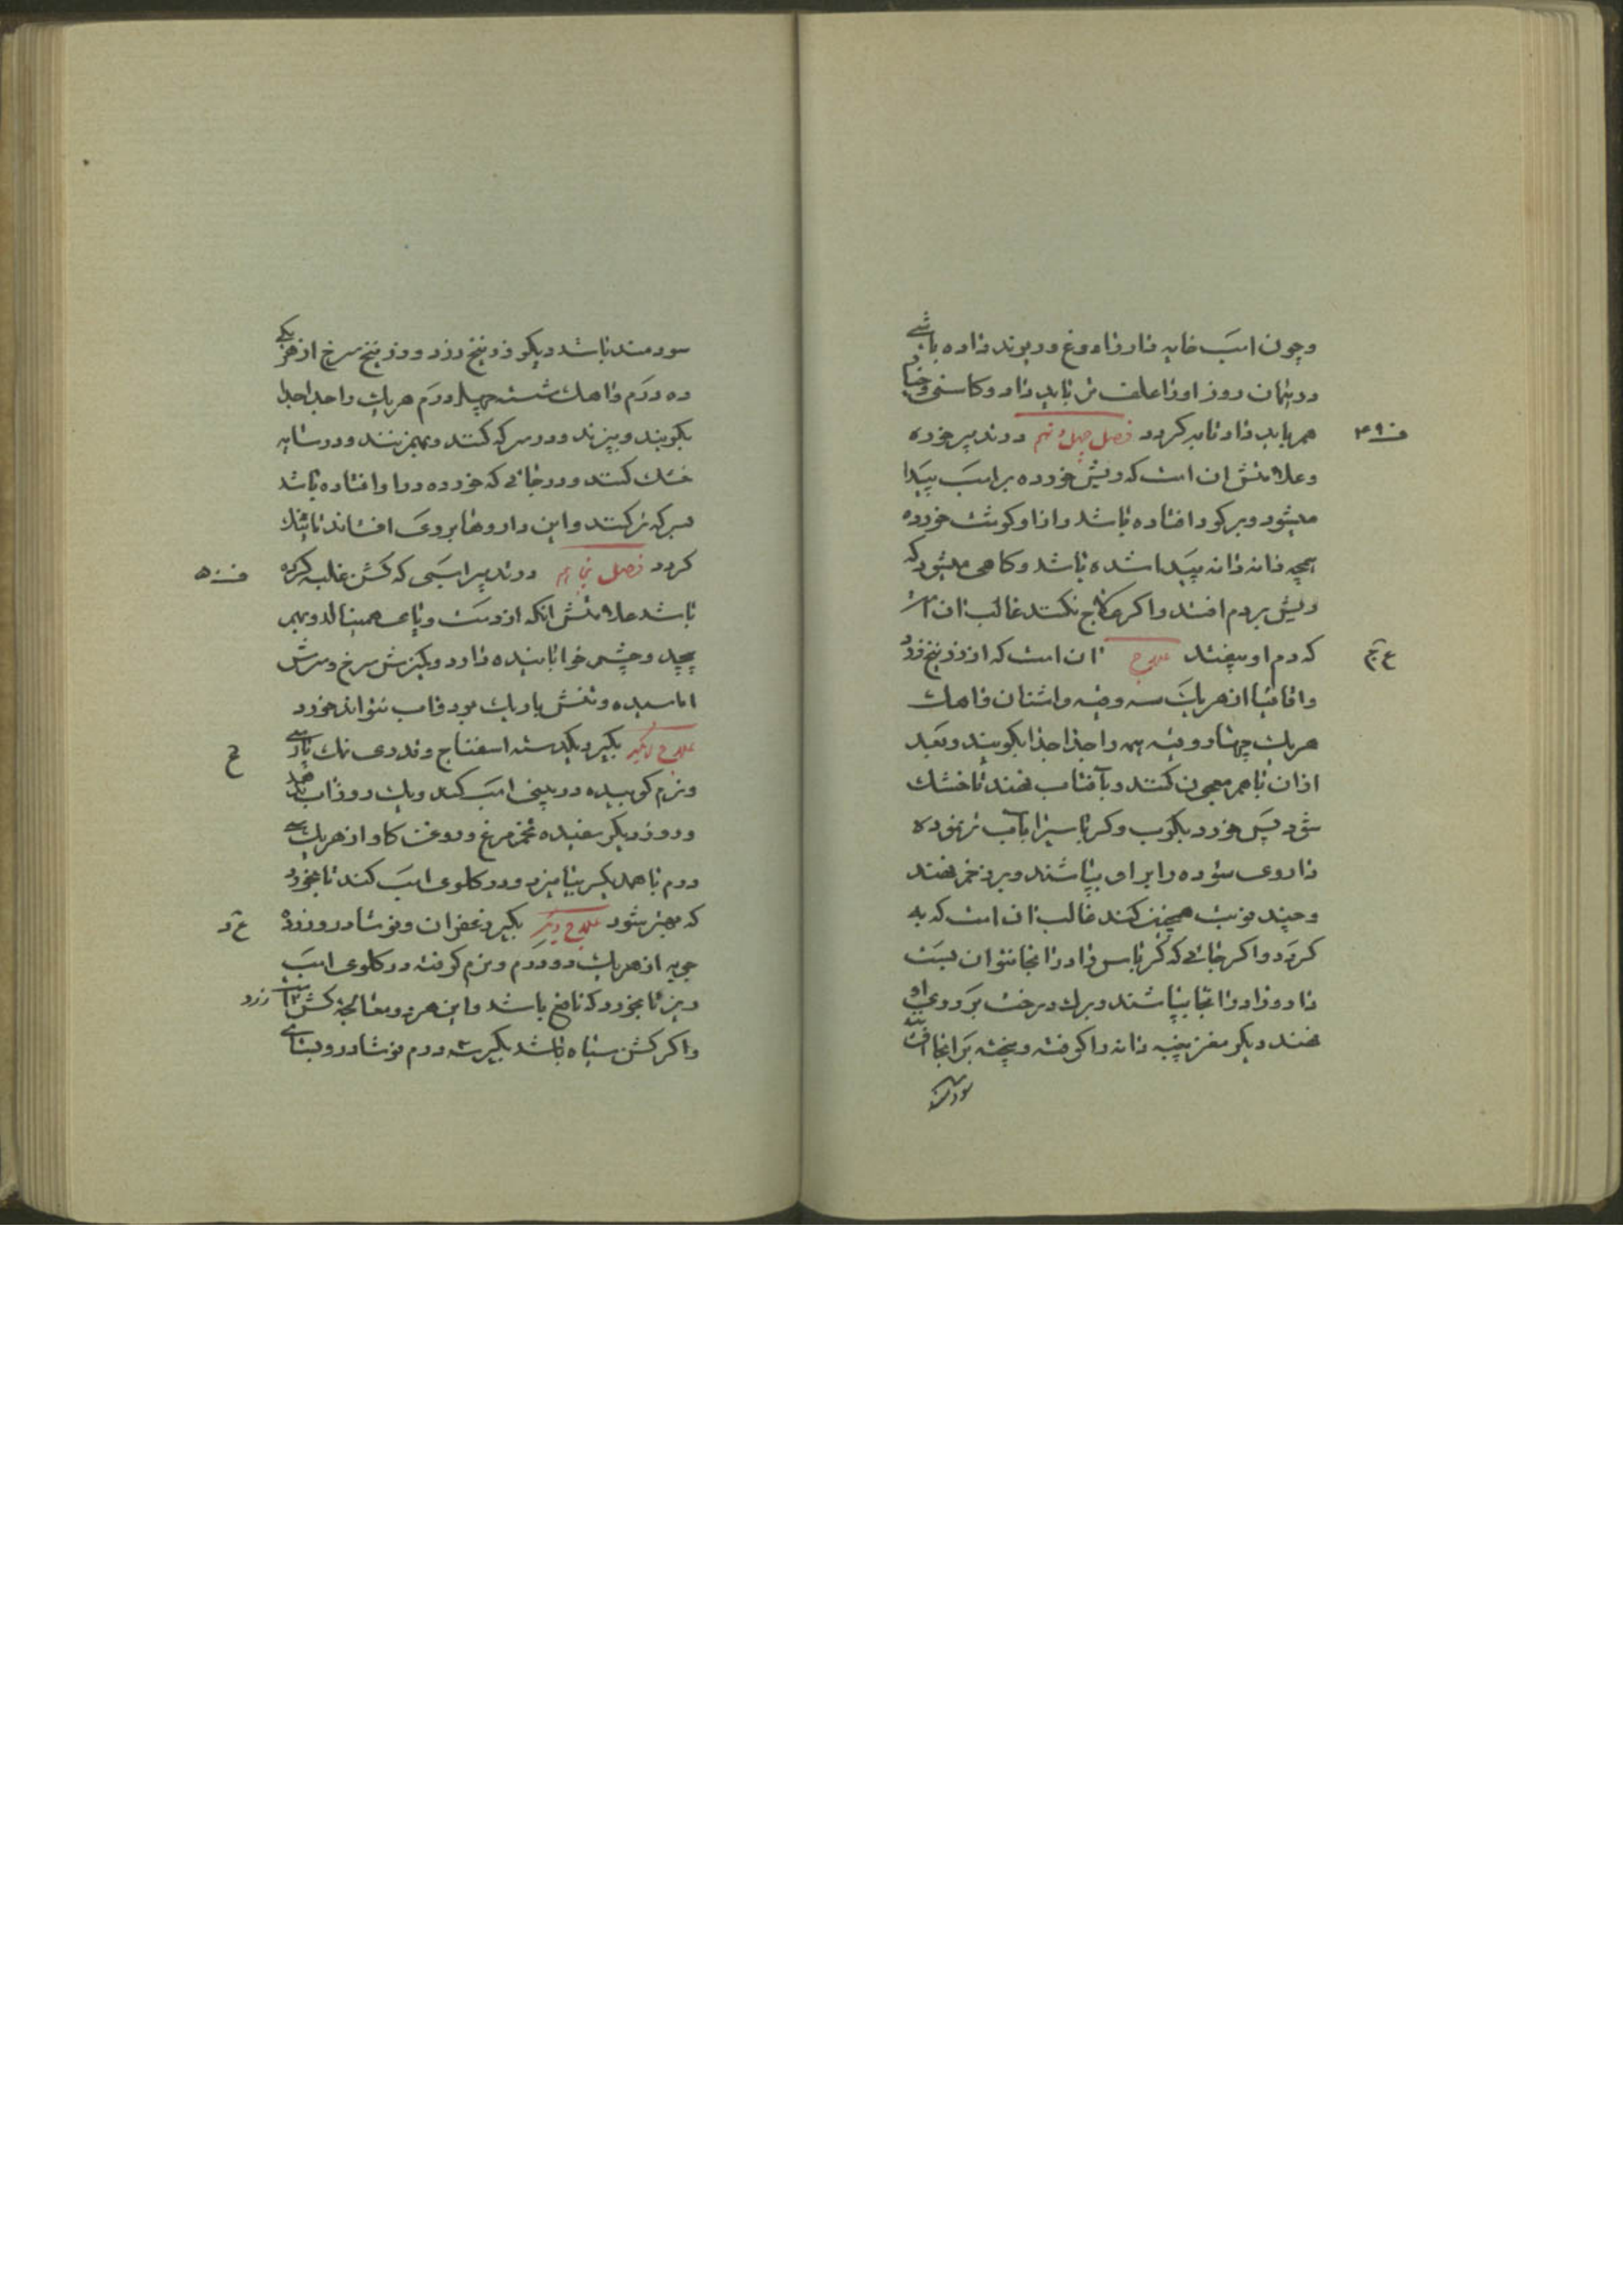 وچون اسب خایه دار را دوغ و ریوند داده باشی
در همان روز او را علف تر باید داد و کاسنی و خیار
هم باید داد تا به کردد فصل چهل و نهم در تدبیر خوره
ف ۴۹
وعلامتش ان است که ریش خورده بر اسب پیدا
میشود و بر کون افتاده باشد و انرا و کوشت خورده
همچه دانه دانه پیدا شده باشد و کاهی میشود که
ریش بر دم افتد و اکر علاج نکنند غالب ان است
که دم او بیفتد علاج ان است که از زرنیخ زرد
واقاقیا از هر یک سه وقیه واشنان و اهک
هر یک چهار وقیه همه را جدا جدا بکوبند و بعد
ازان با هم معجون کنند و بآفتاب نهند تا خشک
شود پس خورد بکوب و کرباسیرا بآب تر نموده
داروی سوده را بر او بپاشند و بر زخم نهند
وچند نوبت همچنین کنند غالب ان است که به
کردد و اکر جائی که کرباس را در انجا نتوان بست
دارو را در انجا بپاشند و برک درخت بر روی او
نهند دیکر مغز پنبه دانه را کوفته و پخته بر انجا
سودمند
سودمند باشد دیکر زرنیخ زرد و زرنیخ سرخ از هر یکی
ده درم و اهک شسته چهل درم هر یک را جدا جدا
بکوبند و بپزند و در سرکه کنند و بهم زنند و در سایه
خشک کنند و در جائی که خورده و را افتاده باشد
بسرکه تر کنند و این داروها بروی افشاند تا نیک
کردد فصل پنجاهم در تدبیر اسبی که کش غلبه کرده
ف ۵۰
باشد علامتش انکه از دست و پای همینالد و بهم
پیچد و چشم خوابانیده دارد و کمیزش سرخ و سرش
اماسیده و نفس باریک بود و اب نتواند خورد
علاج بکیرد یکدسته اسفناج و قدری نمک پارسی
ونرم کوبیده در بینی اسب کند و یک روز اب ندهد
و روز دیکر سفیده تخم مرغ و روغن کاو از هر یک سی
درم با همدیکر بیامیزد و در کلوی اسب کند تا بخورد
که بهتر شود علاج دیکر بکیرد زعفران و نوشادر و زرد
چوبه از هر یک دو درم و نرم کرفته در کلوی اسب
ریزد تا بخورد که نافع باشد و این هر دو معالجه کش زرد است
و اکر کش سیاه باشد بکیرد سه درم نوشادر و